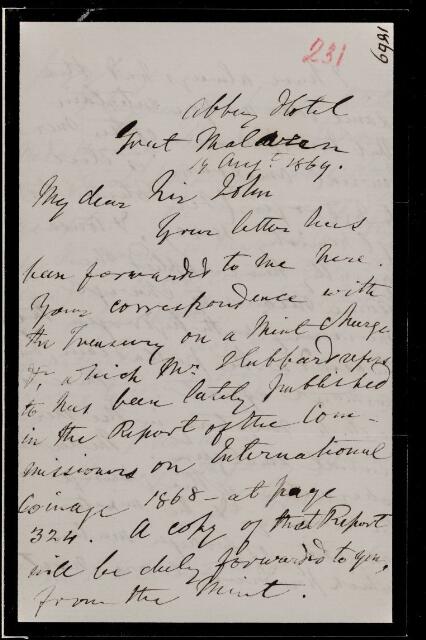 231
1869
Abbey Hotel
Great Malvern
14 Augt. 1869.
My dear Sir John
Your letter has
been forwarded to me here.
Your correspondence with
the Treasury on a Mint Charge
&c, which Mr. Hubbard refers
to has been lately published
in the Report of the Com-
missioners on International
Coinage 1868 - at page
324. A copy of that Report
will be duly forwarded to you,
from the Mint.